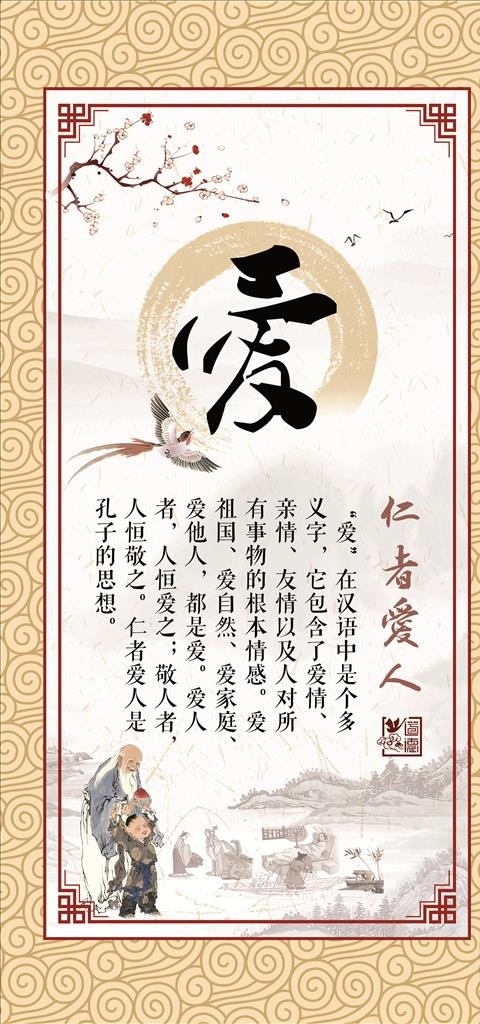 爱
仁者爱人
道德
“爱”在汉语中是个多
义字，它包含了爱情、
亲情、友情以及人对所
有事物的根本情感。爱
祖国、爱自然、爱家庭、
爱他人，都是爱。爱人
者，人恒爱之；敬人者，
人恒敬之。仁者爱人是
孔子的思想。